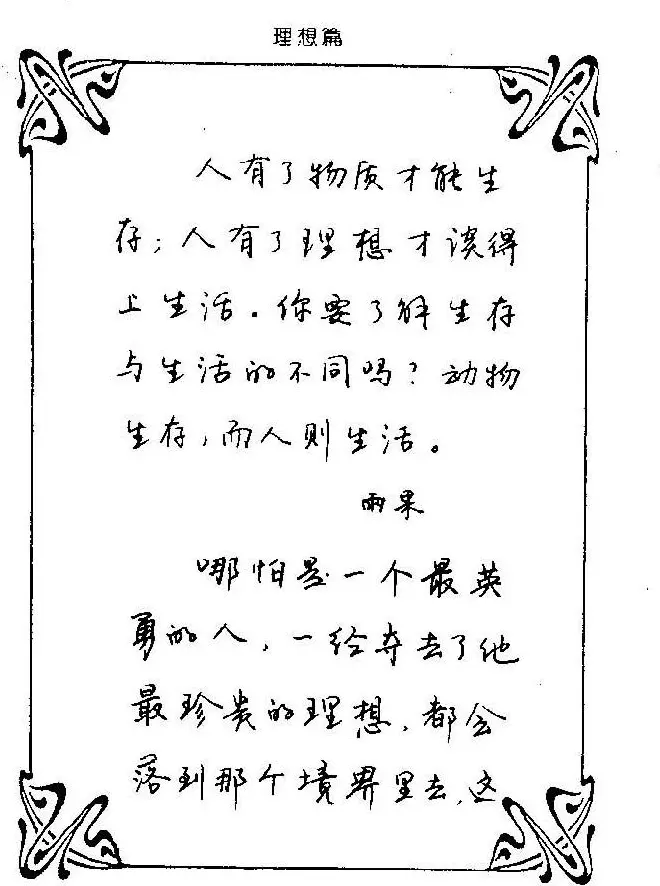 理想篇
人有了物质才能生
存；人有了理想才谈得
上生活。你要了解生存
与生活的不同吗？动物
生存，而人则生活。
雨果
哪怕是一个最英
勇的人，一给夺去了他
最珍贵的理想，都会
落到那个境界里去，这